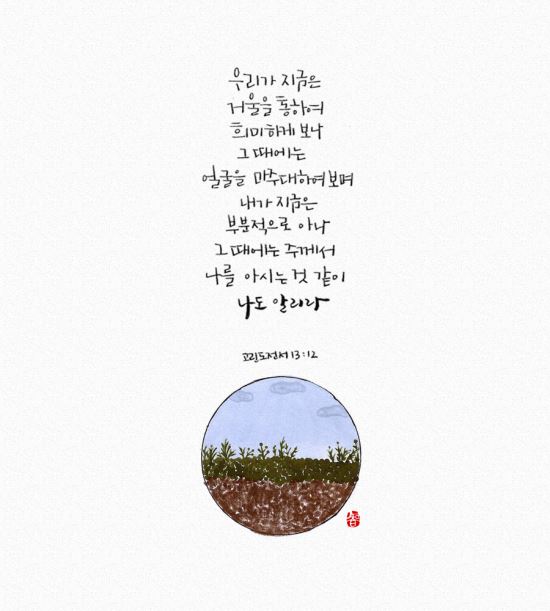 우리가 지금은
거울을 통하여
희미하게 보나
그 때에는
얼굴을 마주대하여 보며
내가 지금은
부분적으로 아나
그 때에는 주께서
나를 아시는 것 같이
나도 알리라
고린도전서 13:12